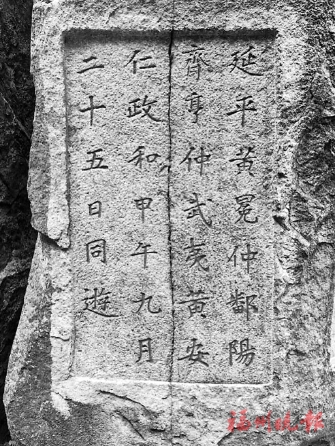 延平黃冕仲鄱陽
齊亨仲武夷黃安
仁政和甲午九月
二十五日同遊
福州晚报